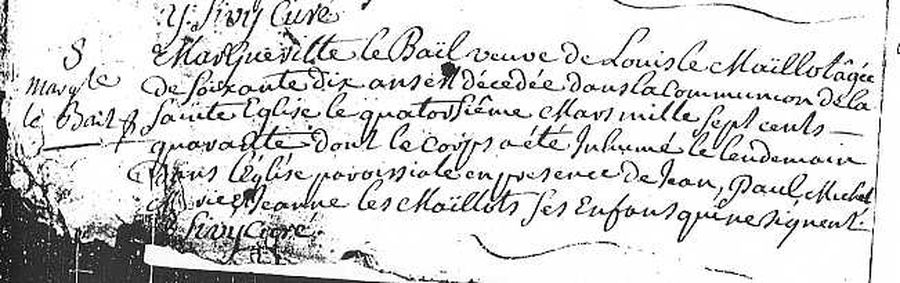 Y. Sivy Curé
S
marg.te
le Bail
Margueritte le Baïl veuve de Louis le Maïllot âgée
de Soixante dix ans est décedée dans la Communion de la
Sainte Eglise le quatorsiême Mars mille sept cents
quarante dont le corps a été Inhumé le lendemain
dans l'Eglise paroissiale en presence de Jean, Paul, Michel
et Jeanne les Maïllots Ses Enfans qui ne signent.
Sivy Curé.